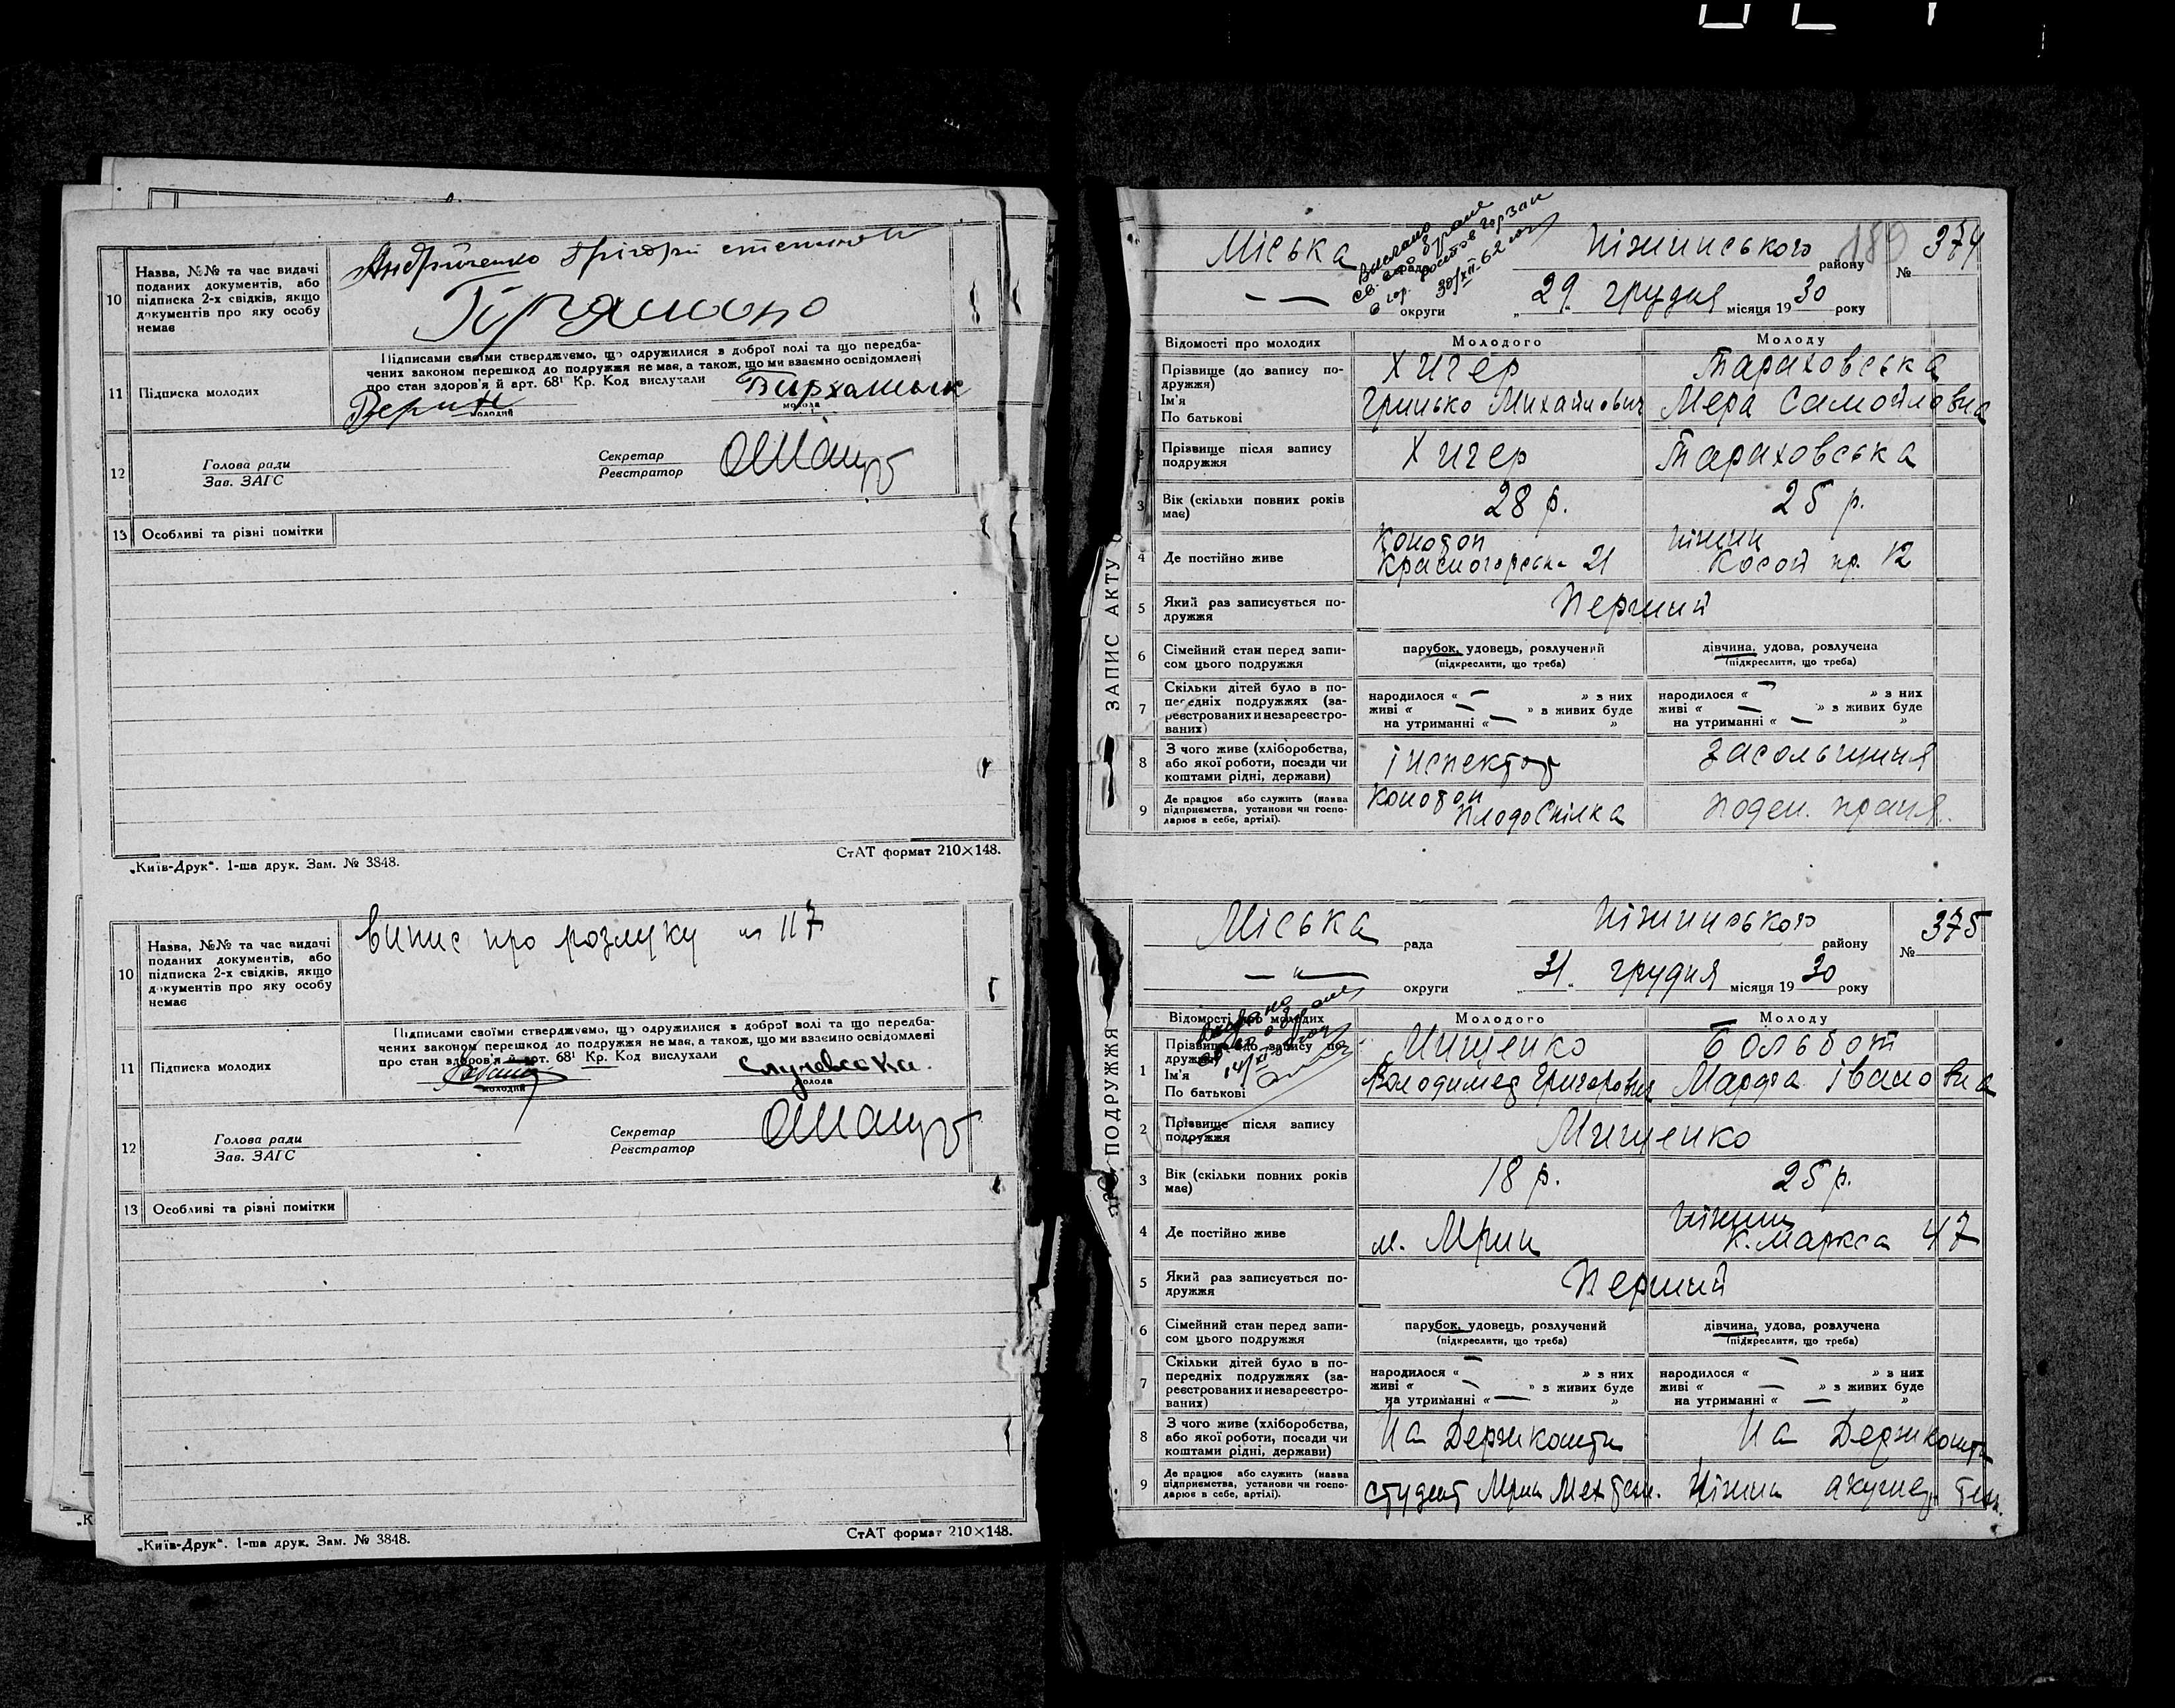 10
Назва, №№ та час видачі
поданих документів, або
підписка 2-х свідків, якщо
документів про яку особу
немає
Андрійченко Грігорій
11
Підписка молодих
Підписами своїми стверджуємо, що одружилися з доброї волі та що передба-
чених законом перешкод до подружжя не має, а також, що ми взаємно освідомлені
про стан здоров'я й арт. 68¹ Кр. Код вислухали
молодий
молода
12
Голова ради
Зав. ЗАГС
Секретар
Реєстратор
13
Особливі та різні помітки
„Київ-Друк". 1-ша друк. Зам. № 3848.
СтАТ формат 210×148.
10
Назва, №№ та час видачі
поданих документів, або
підписка 2-х свідків, якщо
документів про яку особу
немає
Випис про розлуку № 117
11
Підписка молодих
Підписами своїми стверджуємо, що одружилися з доброї волі та що передба-
чених законом перешкод до подружжя не має, а також, що ми взаємно освідомлені
про стан здоров'я й арт. 68¹ Кр. Код вислухали
молодий
молода
12
Голова ради
Зав. ЗАГС
Секретар
Реєстратор
13
Особливі та різні помітки
„Київ-Друк". 1-ша друк. Зам. № 3848.
СтАТ формат 210×148.
ЗАПИС АКТУ
ПРО ПОДРУЖЖЯ
Міська рада Ніжинського району
189
№ 374
— — округи „29" грудня місяця 1930 року
Выслано
св. о браке
в гор. Ростов горзаг
30/XII-62
Відомості про молодих
Молодого
Молоду
1
Прізвище (до запису по-
дружжя)
Ім'я
По батькові
Хигер
Гринько Михайлович
Тараховська
Мера Самойловна
2
Прізвище після запису
подружжя
Хигер
Тараховська
3
Вік (скільки повних років
має)
28 р.
25 р.
4
Де постійно живе
Конотоп
Красногорська 21
Ніжин
Косой пр. 12
5
Який раз записується по-
дружжя
Перший
6
Сімейний стан перед запи-
сом цього подружжя
парубок, удовець, розлучений
(підкреслити, що треба)
дівчина, удова, розлучена
(підкреслити, що треба)
7
Скільки дітей було в по-
передніх подружжях (за-
реєстрованих и незареєстро-
ваних)
народилося « — » з них
живі « — » в живих буде
на утриманні « — »
народилося « — » з них
живі « — » в живих буде
на утриманні « — »
8
З чого живе (хліборобства,
або якої роботи, посади чи
коштами рідні, держави)
інспектор
Засольщиця
9
Де працює або служить (назва
підприємства, установи чи госпо-
дарює в себе, артілі).
Конотоп
Плодоспілка
поден. праця.
Міська рада Ніжинського району
№ 375
— " — округи „31" грудня місяця 1930 року
Відомості про молодих
Молодого
Молоду
1
Прізвище (до запису по-
дружжя)
Ім'я
По батькові
Мищенко
Володимер Григорович
Больбот
Марфа Івановна
2
Прізвище після запису
подружжя
Мищенко
3
Вік (скільки повних років
має)
18 р.
25 р.
4
Де постійно живе
м. Мрин
Ніжин
К. Маркса 47
5
Який раз записується по-
дружжя
Перший
6
Сімейний стан перед запи-
сом цього подружжя
парубок, удовець, розлучений
(підкреслити, що треба)
дівчина, удова, розлучена
(підкреслити, що треба)
7
Скільки дітей було в по-
передніх подружжях (за-
реєстрованих и незареєстро-
ваних)
народилося « — » з них
живі « — » в живих буде
на утриманні « — »
народилося « — » з них
живі « — » в живих буде
на утриманні « — »
8
З чого живе (хліборобства,
або якої роботи, посади чи
коштами рідні, держави)
На Держкошти
На Держкошти
9
Де працює або служить (назва
підприємства, установи чи госпо-
дарює в себе, артілі).
студент Мрин Мех техн.
Ніжин акушер. техн.